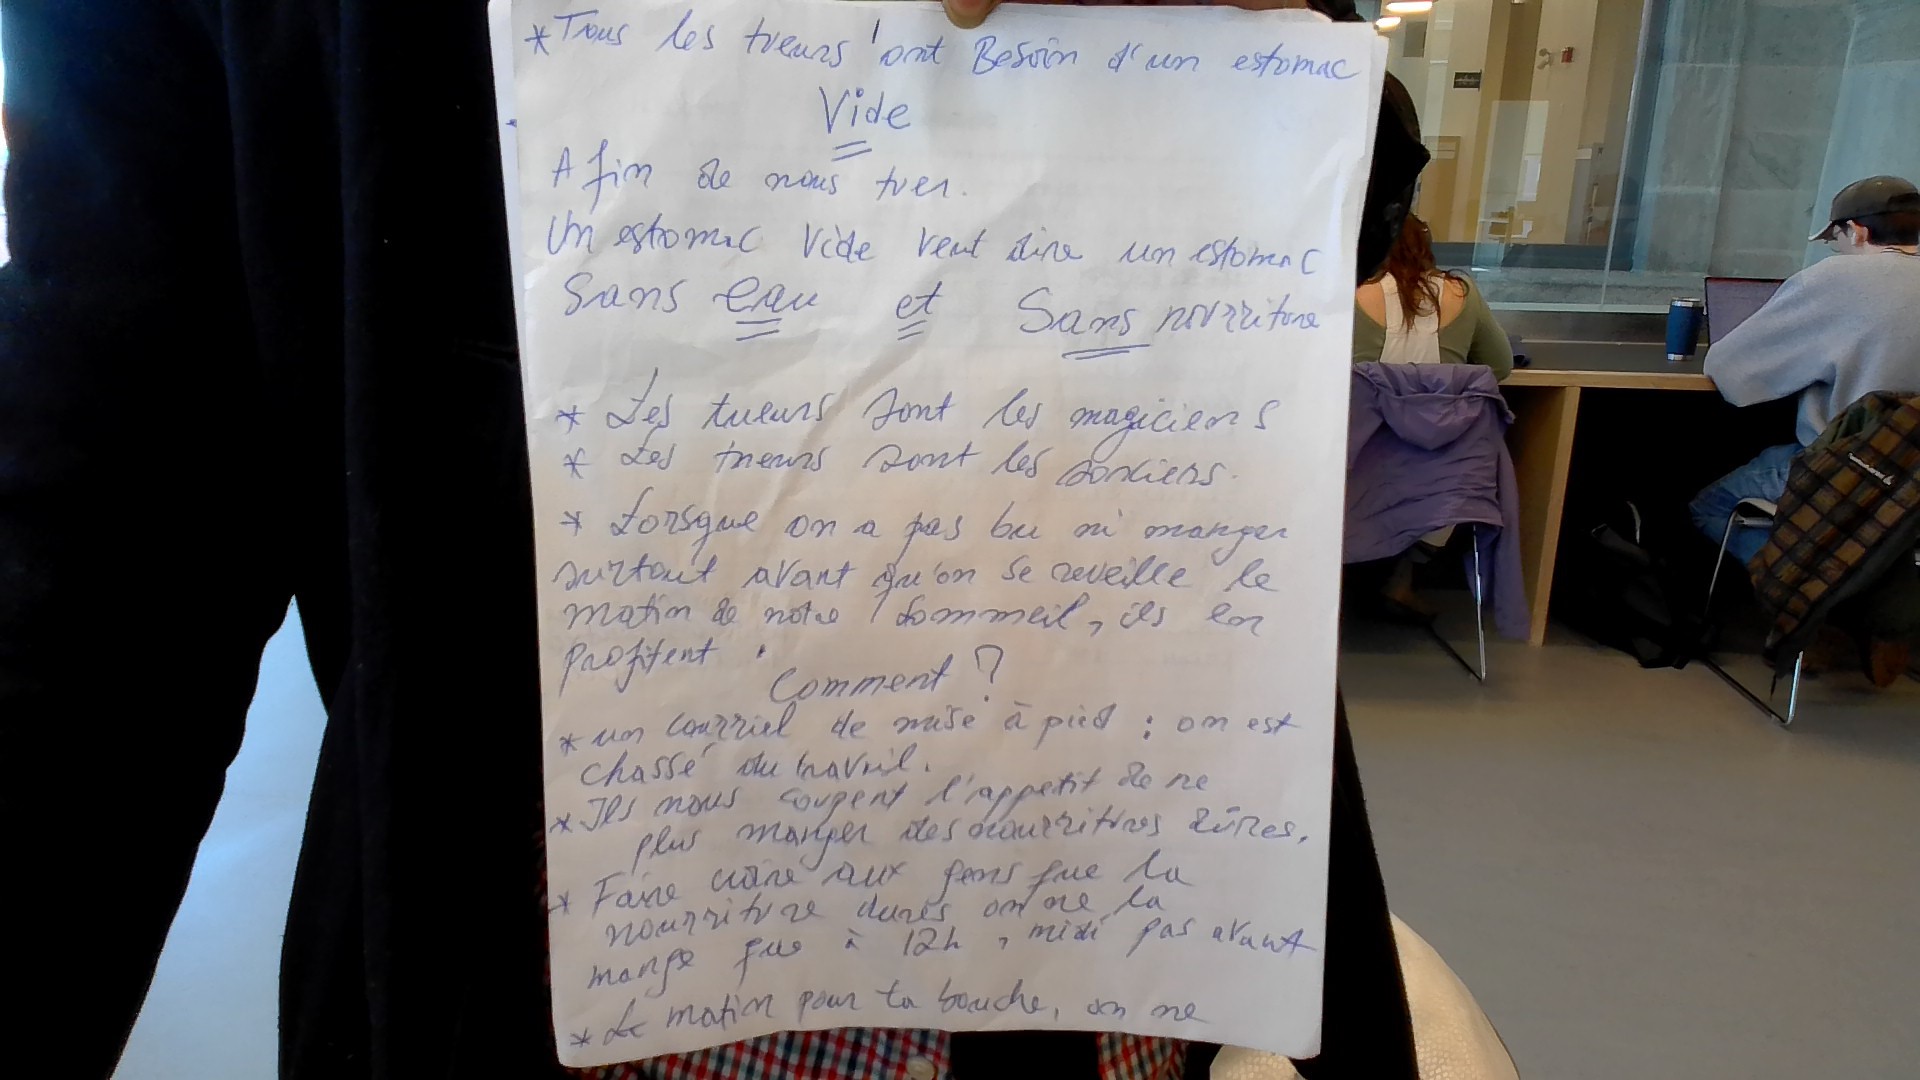 * Tous les tueurs ont Besoin d'un estomac
Vide
Afin de nous tuer.
Un estomac Vide veut dire un estomac
Sans eau et Sans nourriture
* Les tueurs sont les magiciens
* Les tueurs sont les sorciers.
* Lorsque on a pas bu ni manger
surtout avant qu'on se reveille le
matin de notre sommeil, ils en
profitent.
Comment ?
* un courriel de mise à pied : on est
chassé du travail.
* Ils nous coupent l'appetit de ne
plus manger des nourritures dûres.
* Faire croire aux gens que la
nourriture dures on ne la
mange que à 12h, midi pas avant
* Le matin pour ta bouche, on ne